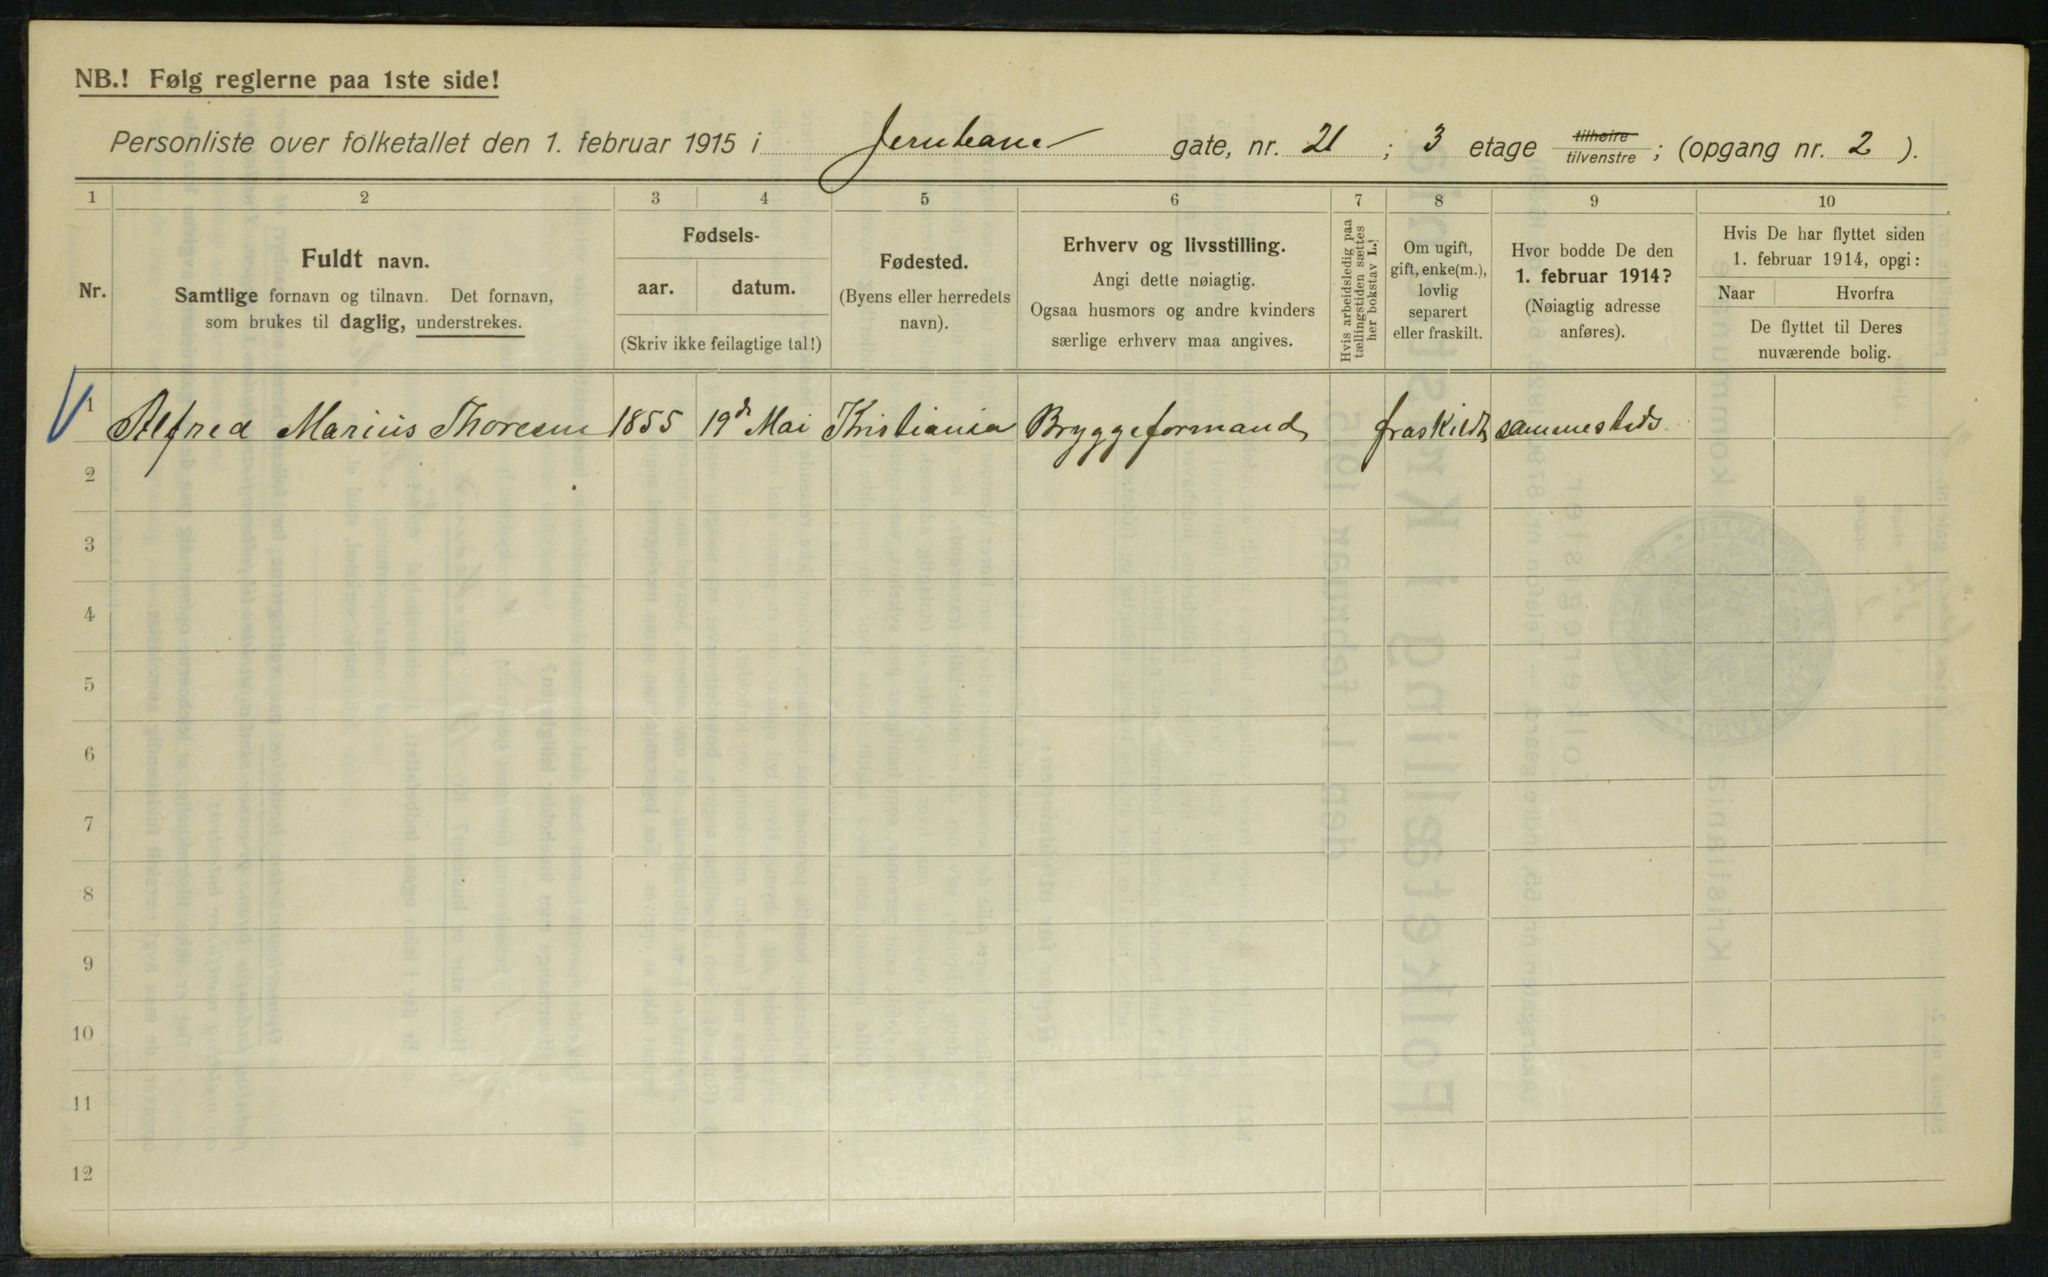 NB.! Følg reglerne paa 1ste side!
Personliste over folketallet den 1. februar 1915 i Jernbane gate, nr. 21 ; 3 etage tilhøire tilvenstre ; (opgang nr. 2 ).
1 2 3 4 5 6 7 8 9 10
Nr.
Fuldt navn.
Samtlige fornavn og tilnavn. Det fornavn,
som brukes til daglig, understrekes.
Fødsels-
aar. datum.
(Skriv ikke feilagtige tal!)
Fødested.
(Byens eller herredets
navn).
Erhverv og livsstilling.
Angi dette nøiagtig.
Ogsaa husmors og andre kvinders
særlige erhverv maa angives.
Hvis arbeidsledig paa
tællingstiden sættes
her bokstav L.!
Om ugift,
gift, enke(m.),
lovlig
separert
eller fraskilt.
Hvor bodde De den
1. februar 1914?
(Nøiagtig adresse
anføres).
Hvis De har flyttet siden
1. februar 1914, opgi:
Naar Hvorfra
De flyttet til Deres
nuværende bolig.
1 Alfred Marius Thoresen 1855 19de Mai Kristiania Bryggeformand fraskildt sammesteds.
2
3
4
5
6
7
8
9
10
11
12